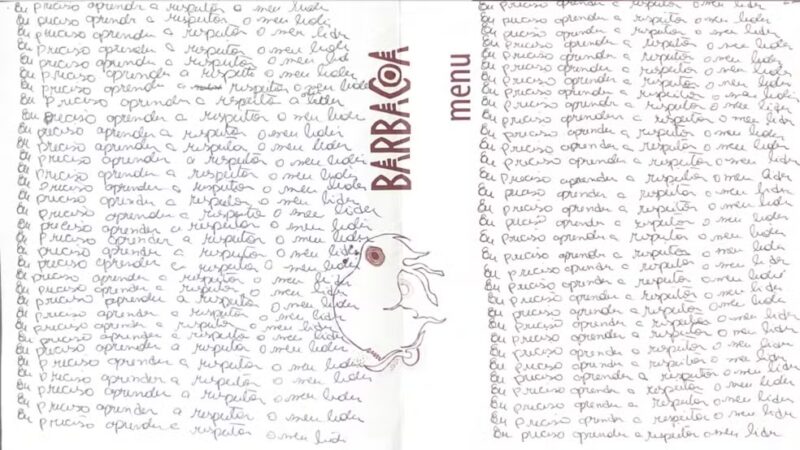 Eu preciso aprender a respeitar o meu lider
Eu preciso aprender a respeitar o meu lider
Eu preciso aprender a respeitar o meu lider
Eu preciso aprender a respeitar o meu lider
Eu preciso aprender a respeitar o meu lider
Eu preciso aprender a respeitar o meu lider
Eu preciso aprender a respeitar o meu lider
Eu preciso aprender a respeitar o lider
Eu preciso aprender a respeitar o meu lider
Eu preciso aprender a respeitar o meu lider
Eu preciso aprender a respeitar o meu lider
Eu preciso aprender a respeitar o meu lider
Eu preciso aprender a respeitar o meu lider
Eu preciso aprender a respeitar o meu lider
Eu preciso aprender a respeitar o meu lider
Eu preciso aprender a respeitar o meu lider
Eu preciso aprender a respeitar o meu lider
Eu preciso aprender a respeitar o meu lider
Eu preciso aprender a respeitar o meu lider
Eu preciso aprender a respeitar o meu lider
Eu preciso aprender a respeitar o meu lider
Eu preciso aprender a respeitar o meu lider
Eu preciso aprender a respeitar o meu lider
Eu preciso aprender a respeitar o meu lider
Eu preciso aprender a respeitar o meu lider
Eu preciso aprender a respeitar o meu lider
Eu preciso aprender a respeitar o meu lider
Eu preciso aprender a respeitar o meu lider
Eu preciso aprender a respeitar o meu lider
Eu preciso aprender a respeitar o meu lider
Eu preciso aprender a respeitar o meu lider
Eu preciso aprender a respeitar o meu lider
BARBACOA
menu
Eu preciso aprender a respeitar o meu lider
Eu preciso aprender a respeitar o meu lider
Eu preciso aprender a respeitar o meu lider
Eu preciso aprender a respeitar o meu lider
Eu preciso aprender a respeitar o meu lider
Eu preciso aprender a respeitar o meu lider
Eu preciso aprender a respeitar o meu lider
Eu preciso aprender a respeitar o meu lider
Eu preciso aprender a respeitar o meu lider
Eu preciso aprender a respeitar o meu lider
Eu preciso aprender a respeitar o meu lider
Eu preciso aprender a respeitar o meu lider
Eu preciso aprender a respeitar o meu lider
Eu preciso aprender a respeitar o meu lider
Eu preciso aprender a respeitar o meu lider
Eu preciso aprender a respeitar o meu lider
Eu preciso aprender a respeitar o meu lider
Eu preciso aprender a respeitar o meu lider
Eu preciso aprender a respeitar o meu lider
Eu preciso aprender a respeitar o meu lider
Eu preciso aprender a respeitar o meu lider
Eu preciso aprender a respeitar o meu lider
Eu preciso aprender a respeitar o meu lider
Eu preciso aprender a respeitar o meu lider
Eu preciso aprender a respeitar o meu lider
Eu preciso aprender a respeitar o meu lider
Eu preciso aprender a respeitar o meu lider
Eu preciso aprender a respeitar o meu lider
Eu preciso aprender a respeitar o meu lider
Eu preciso aprender a respeitar o meu lider
Eu preciso aprender a respeitar o meu lider
Eu preciso aprender a respeitar o meu lider